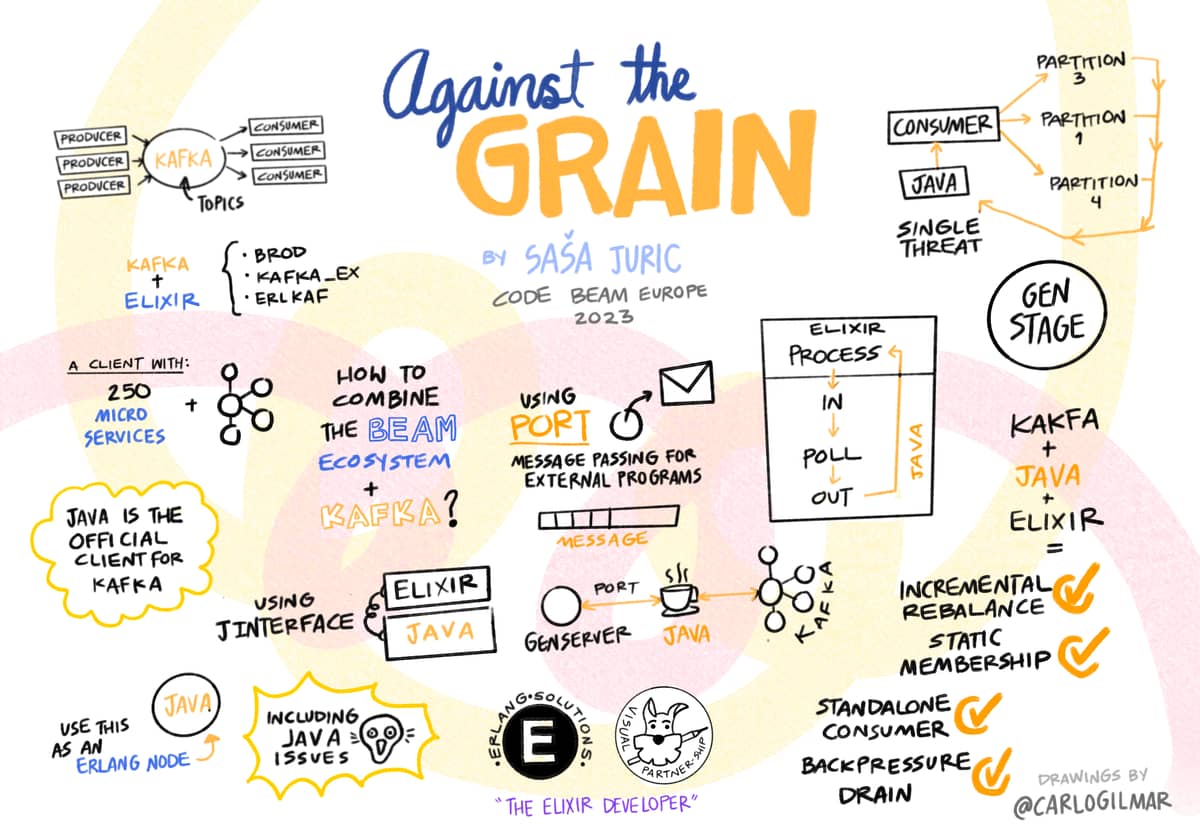 Against the
GRAIN
BY SAŠA JURIC
CODE BEAM EUROPE
2023
PRODUCER
PRODUCER
PRODUCER
KAFKA
TOPICS
CONSUMER
CONSUMER
CONSUMER
KAFKA
+
ELIXIR
· BROD
· KAFKA_EX
· ERLKAF
A CLIENT WITH:
250
MICRO
SERVICES
+
HOW TO
COMBINE
THE BEAM
ECOSYSTEM
+
KAFKA?
JAVA IS THE
OFFICIAL
CLIENT FOR
KAFKA
USING
JINTERFACE
ELIXIR
JAVA
USE THIS
AS AN
ERLANG NODE
JAVA
INCLUDING
JAVA
ISSUES
USING
PORT
MESSAGE PASSING FOR
EXTERNAL PROGRAMS
MESSAGE
GENSERVER
PORT
JAVA
KAFKA
ELIXIR
PROCESS
IN
POLL
OUT
JAVA
CONSUMER
JAVA
SINGLE
THREAT
PARTITION
3
PARTITION
1
PARTITION
4
GEN
STAGE
KAKFA
+
JAVA
+
ELIXIR
=
INCREMENTAL
REBALANCE
STATIC
MEMBERSHIP
STANDALONE
CONSUMER
BACKPRESSURE
DRAIN
·ERLANG·SOLUTIONS·
E
VISUAL
PARTNER·SHIP
"THE ELIXIR DEVELOPER"
DRAWINGS BY
@CARLOGILMAR